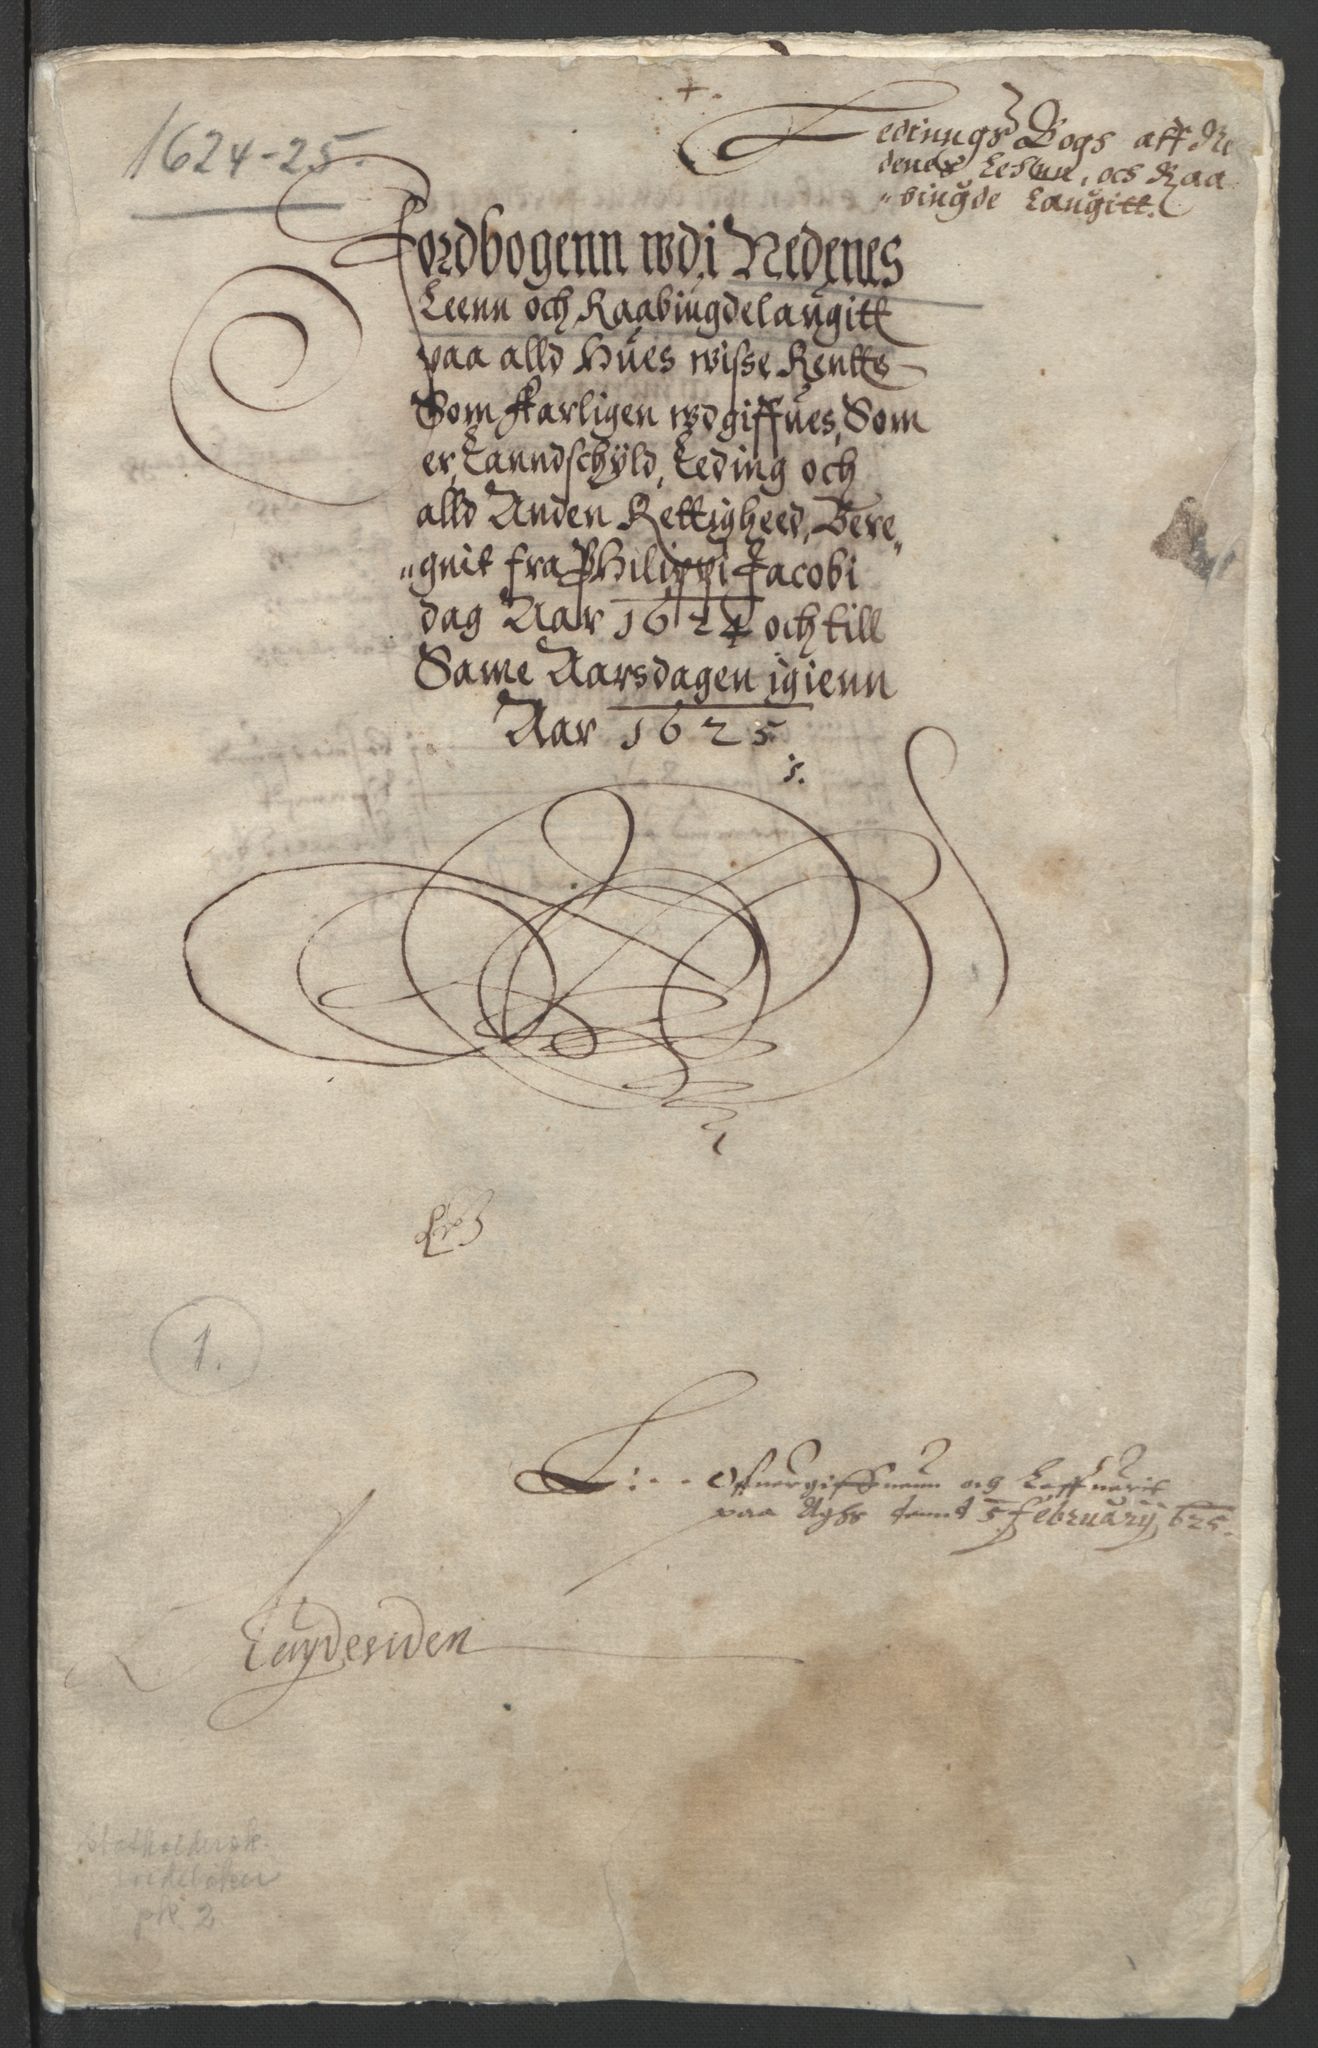 1624-25.
Ledinngs Bogh aff Ne
denes Lehnn, och Raa
„bingde Laugitt.
Jordbogenn wdi Nedenes
Leenn och Raabÿngdelaugitt
paa alld Hues wisse Rentte
Som Aarligen wdgiffues, Som
er, Lanndschÿld, Leding och
alld Anden Rettigheed, Bere„
„gnit fra PHilippi Jacobi
dag Aar 1624 och till
Same Aarsdagen igienn
Aar 1625
1.
Offuergiffuenn og Leffuerit
paa Aghs 5 February 625.
Laÿdesiden
Statholderark.
Jordebøker
pk. 2